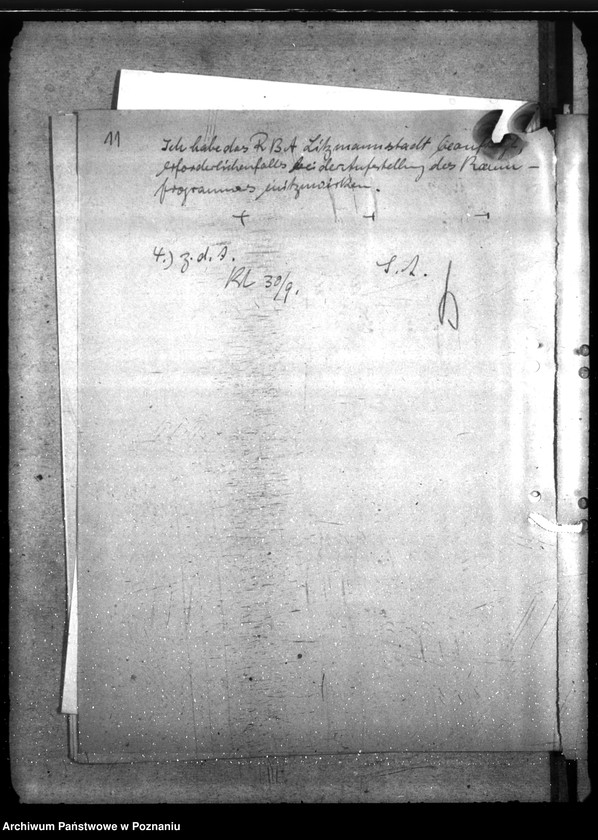 11
Ich habe das R B A Litzmannstadt beauf
erforderlichenfalls bei der Aufstellung des Raum-
programmes mitzuwirken.
4.) z. d. A.
30/9.
Archiwum Państwowe w Poznaniu